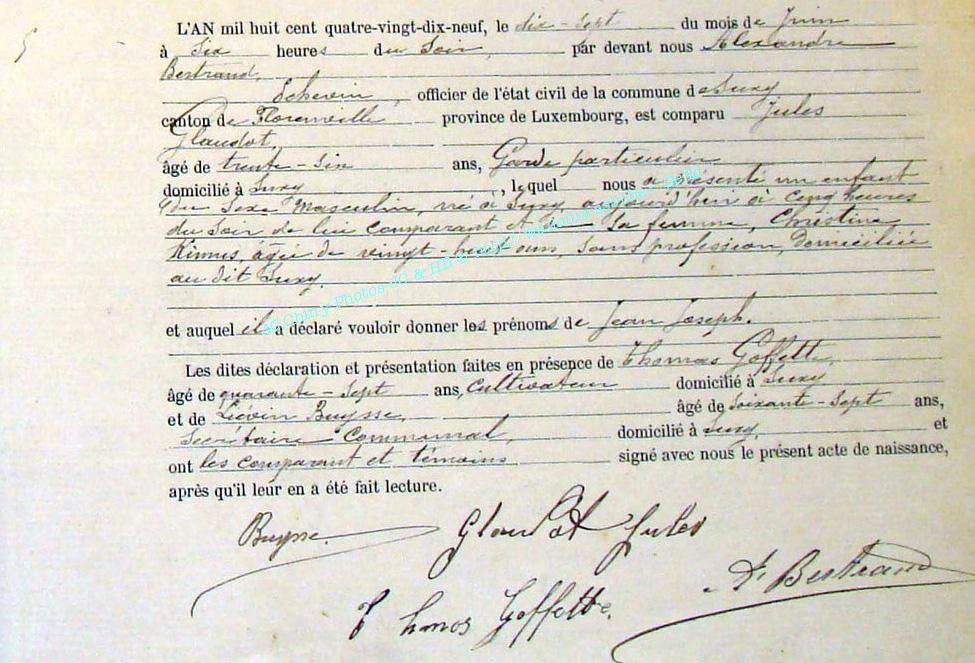 L'AN mil huit cent quatre-vingt-dix-neuf, le dix-sept du mois de Juin
à Six heures du Soir, par devant nous Alexandre
Bertrand,
Echevin, officier de l'état civil de la commune de Suxy
canton de Florenville province de Luxembourg, est comparu Jules
Glaudot,
âgé de trente-six ans, Garde particulier
domicilié à Suxy, lequel nous a présenté un enfant
du Sexe Masculin, né à Suxy, aujourd'hui à cinq heures
du Soir de lui comparant et de Sa femme, Christine
âgée de vingt-huit ans, Sans profession, domiciliée
au dit Suxy.
et auquel il a déclaré vouloir donner les prénoms de Jean Joseph.
Les dites déclaration et présentation faites en présence de Thomas Goffette,
âgé de quarante-Sept ans, Cultivateur domicilié à Suxy
et de Liévin Buysse, âgé de Soixante-Sept ans,
Secrétaire Communal, domicilié à Suxy, et
ont les comparant et témoins signé avec nous le présent acte de naissance,
après qu'il leur en a été fait lecture.
Buysse. Glaudot Jules
A. Bertrand
Goffette.